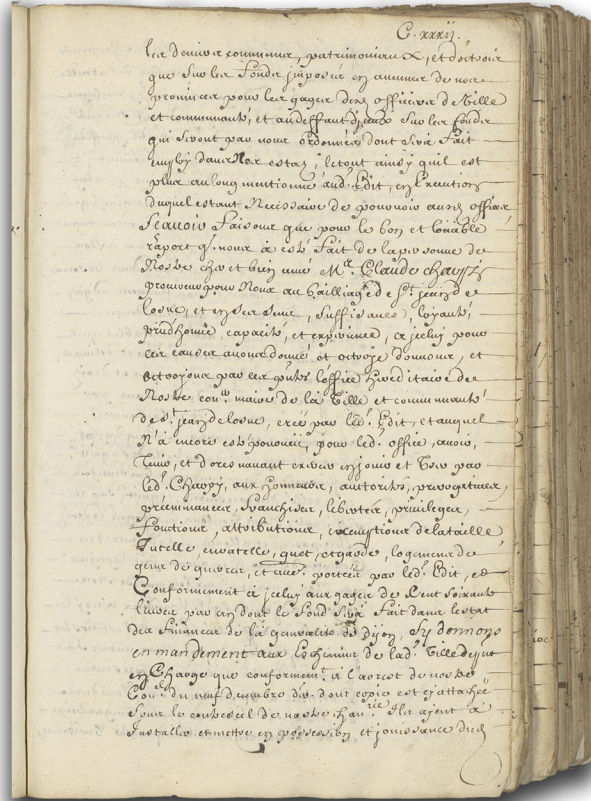 C. xxxij.
les deniers communs, patrimoniaux, et d'octrois
que sur les fonds imposez en aucunes de nos
provinces pour les gages des officiers de Ville
et communauté, et au deffaut d'iceux sur les fonds
qui seront par nous ordonnés, dont sera fait
employ dans Nos estas, le tout ainsy quil est
plus au long mentionné aud. Edit, en Execution
duquel estant Necessaire de pourvoir ausd. offices
Scavoir faisons que pour le bon et loüable
raport q. nous à esté fait de la personne de
Nostre cher et bien amé Me. Claude chappy
procureur pour Nous au bailliage de St. jean de
losne, et en ses sens, suffisance, loyauté,
prudhomie capacité, et experience, a jceluy pour
ces causes avons donné et octroyé donnons, et
octroyons par ces pntes l'office hereditaire de
Nostre con.er maire de la Ville et communauté
de St. jean de losne, creé par led. Edit, et auquel
N'à encore esté pourveu, pour led. office, avoir,
tenir, et d'ores navant exercer en jouir et User par
led. Chappy, aux honneurs, autorités, prerogatives,
préeminences, franchises, libertés, privileges,
fonctions, attributions, exemptions de la taille
Tutelle, curatelle, guet, et garde, logement de
gens de guerre, et aues. portées par led. Edit, et
Conformement à jceluy aux gages de Cent soixante
livres par an dont le fond sera fait dans l'estat
des finances de la generalité de Dijon, Sy donnons
en mandement aux Eschevins de lad. Ville de put
en Charge que conformemt. à l'arrest de nostre
Con.el du neuf decembre der. dont copie est cy attachée
sous le contrescel de nostre chan.rie Ils ayent à
Installer et mettre en possession et jouissance dud.